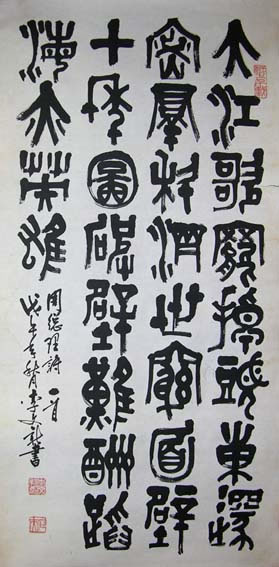 大江歌罷掉頭東邃
密群科濟世窮面壁
十年圖破壁難酬蹈
海亦英雄
周總理詩一首
戊午秋月李文書